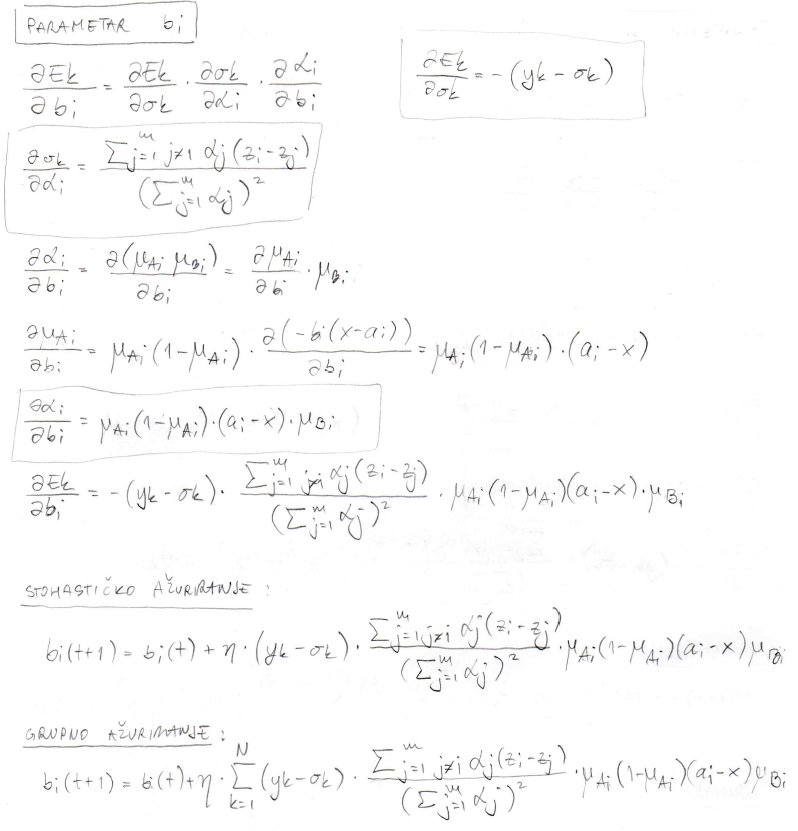 PARAMETAR bi
∂Ek/∂bi = ∂Ek/∂ok · ∂ok/∂αi · ∂αi/∂bi
∂Ek/∂ok = -(yk - ok)
∂ok/∂αi = ∑j=1^m j≠1 αj(zi-zj) / (∑j=1^m αj)^2
∂αi/∂bi = ∂(μAi μBi)/∂bi = ∂μAi/∂bi · μBi
∂μAi/∂bi = μAi(1-μAi) · ∂(-bi(x-ai))/∂bi = μAi(1-μAi)·(ai-x)
∂αi/∂bi = μAi(1-μAi)·(ai-x)·μBi
∂Ek/∂bi = -(yk-ok) · ∑j=1^m j≠i αj(zi-zj) / (∑j=1^m αj)^2 · μAi(1-μAi)(ai-x)·μBi
STOHASTIČKO AŽURIRANJE :
bi(t+1) = bi(t) + η · (yk-ok) · ∑j=1^m j≠i αj(zi-zj) / (∑j=1^m αj)^2 · μAi(1-μAi)(ai-x)μBi
GRUPNO AŽURIRANJE :
bi(t+1) = bi(t) + η · ∑k=1^N (yk-ok) · ∑j=1^m j≠i αj(zi-zj) / (∑j=1^m αj)^2 · μAi(1-μAi)(ai-x)μBi